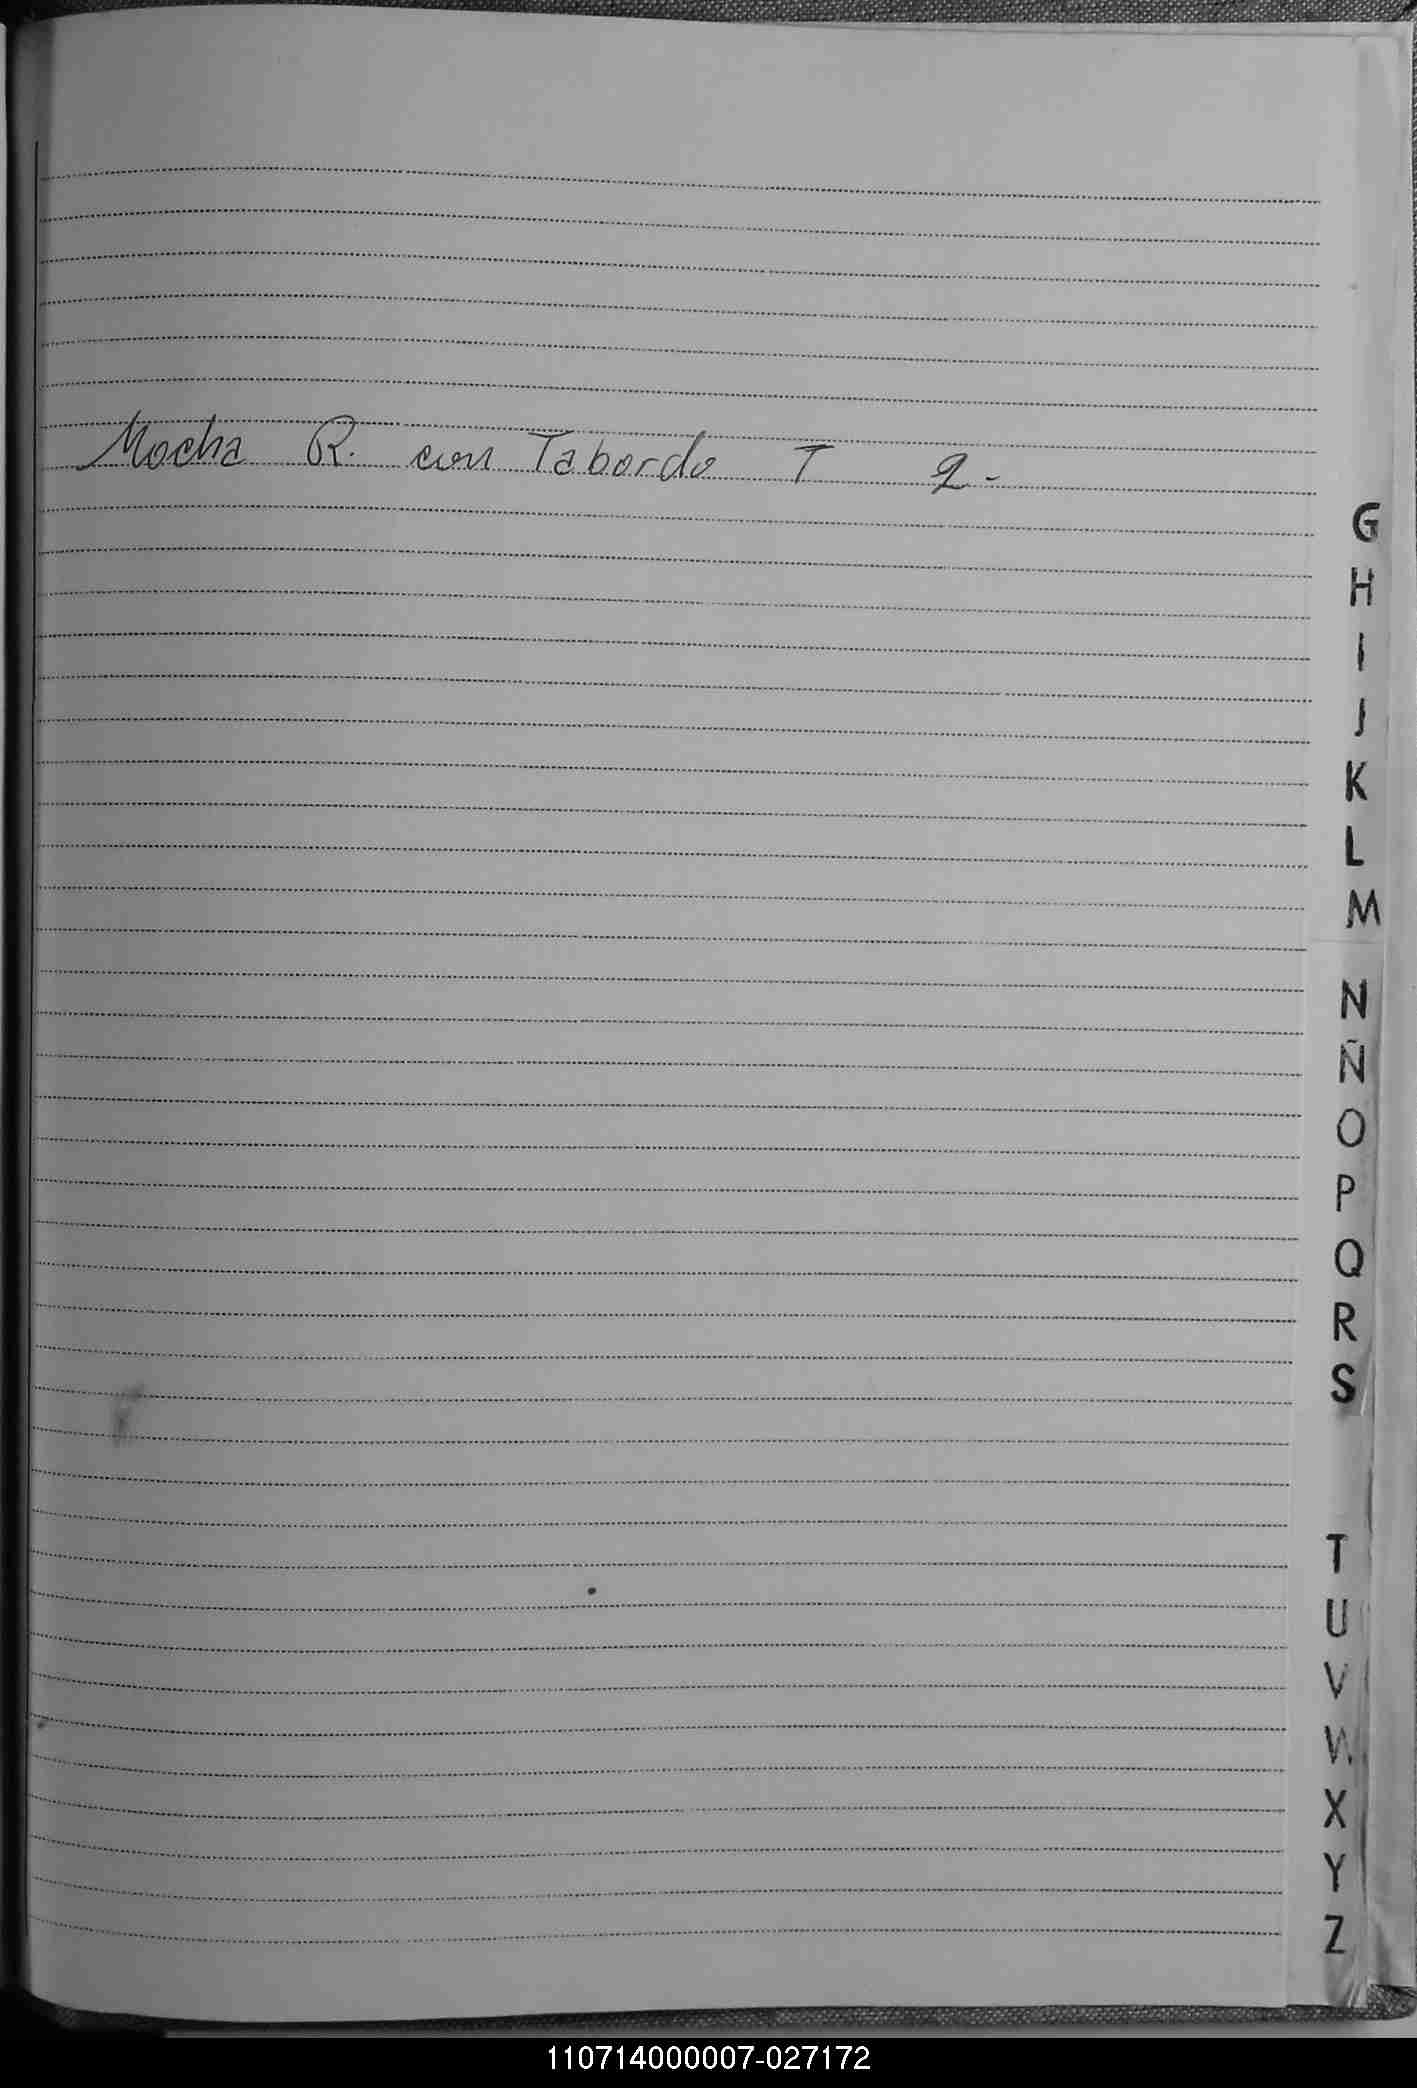 Mocha R. con Tabordo T 2.-
G
H
I
J
K
L
M
N
Ñ
O
P
Q
R
S
T
U
V
W
X
Y
Z
110714000007-027172